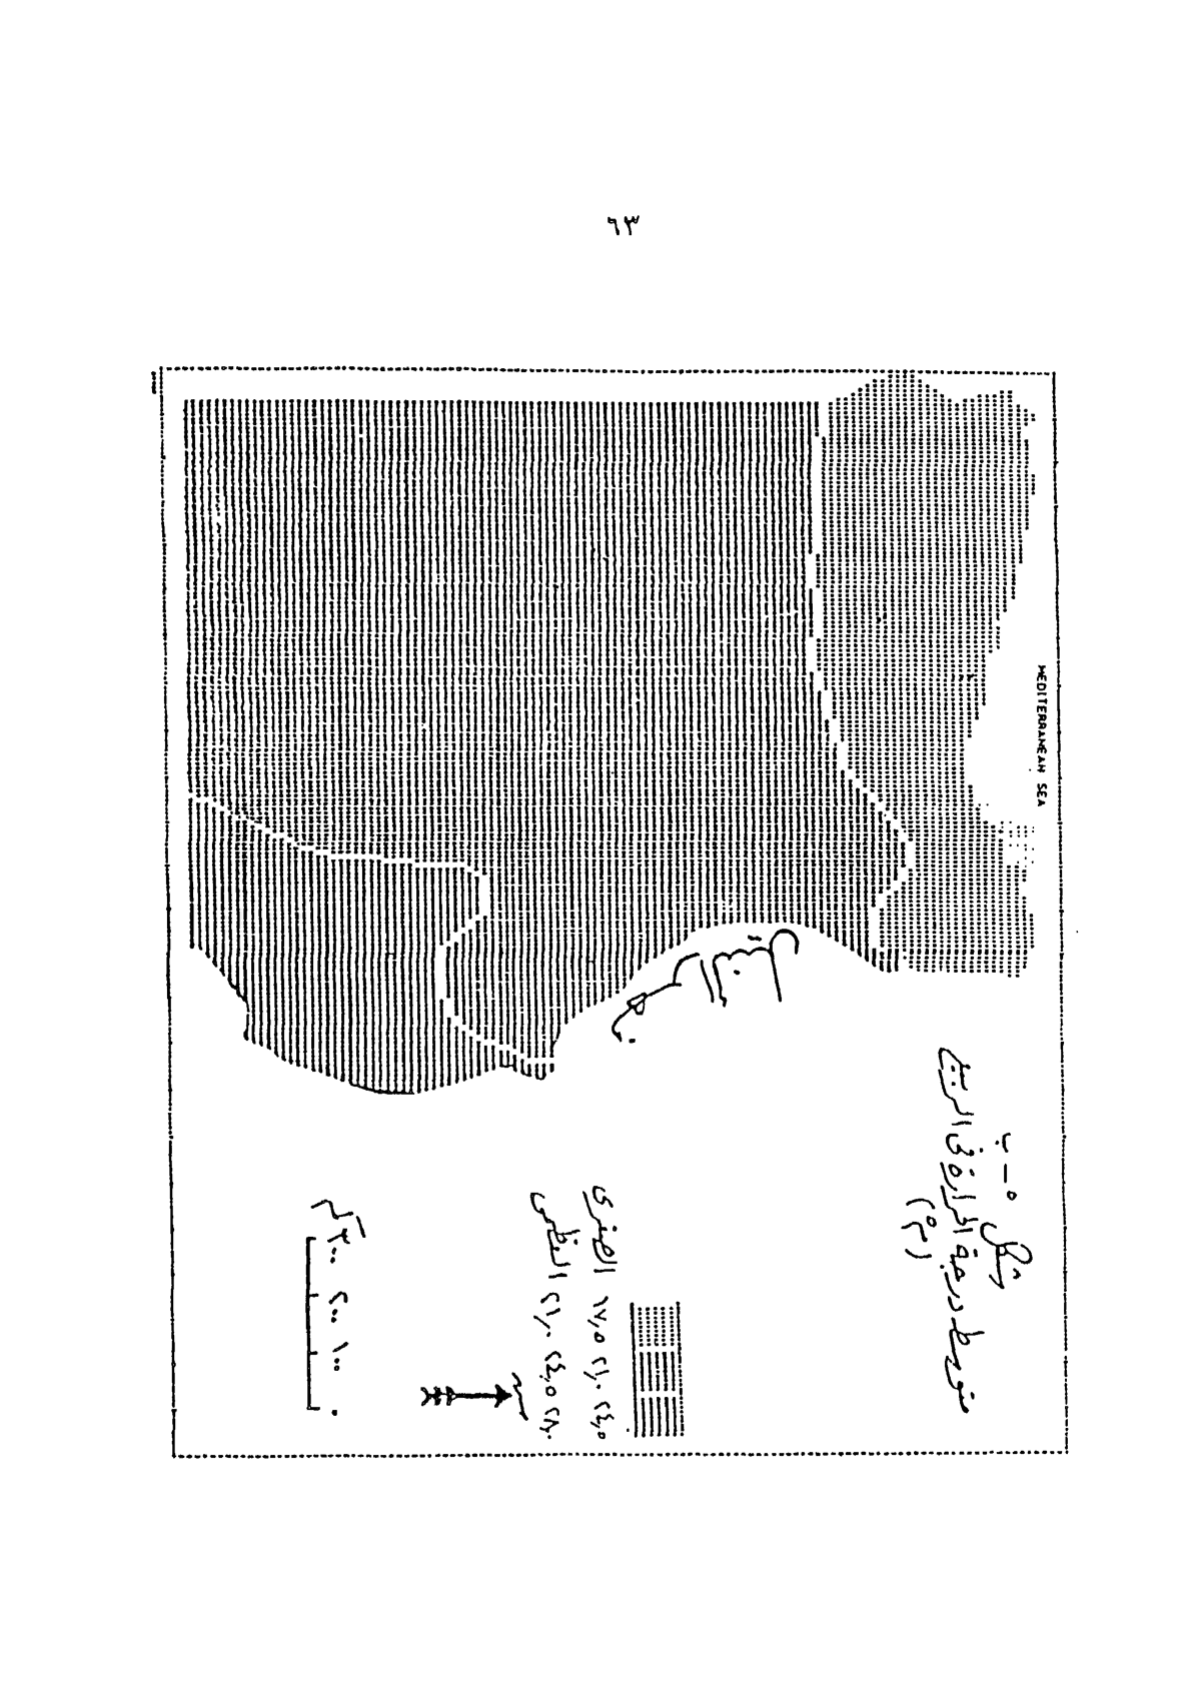 ٦٣
MEDITERRANEAN SEA
شكل ٥ – ب
متوسط درجة الحرارة فى الربيع
(م°)
نهر النيل
الصغرى ١٧٫٥ ٢١٫٠ ٢٤٫٥
العظمى ٢١٫٠ ٢٤٫٥ ٢٨٫٠
٠ ١٠٠ ٢٠٠ ٣٠٠ كم